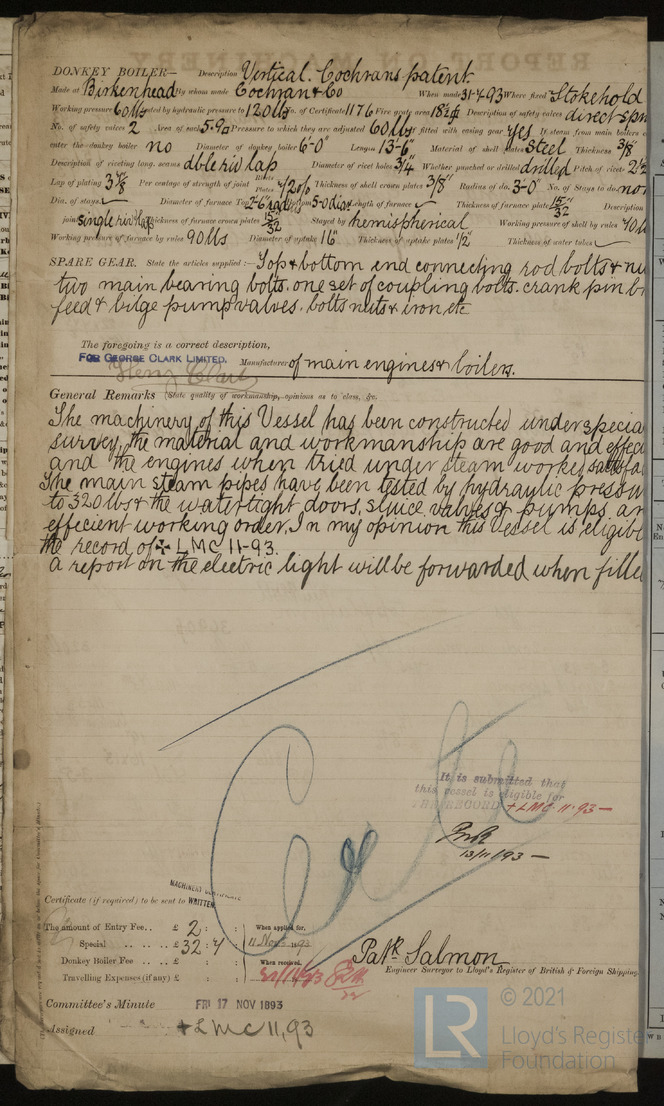 DONKEY BOILER— Description Vertical. Cochrans patent.
Made at Birkenhead By whom made Cochran & Co When made 31-4-93 Where fixed Stokehold
Working pressure 60 lbs tested by hydraulic pressure to 120 lbs No. of Certificate 1176 Fire grate area 18½ Description of safety valves direct spri
No. of safety valves 2 Area of each 5.90 Pressure to which they are adjusted 60 lbs fitted with easing gear Yes If steam from main boilers c
enter the donkey boiler no Diameter of donkey boiler 6'-0" Length 13'-6" Material of shell plates Steel Thickness 3/8
Description of riveting long. seams dble riv lap Diameter of rivet holes 3/4" Whether punched or drilled drilled Pitch of rivets 2½
Lap of plating 3 Per centage of strength of joint Rivets Plates Thickness of shell crown plates 3/8" Radius of do. 3-0" No. of Stays to do. non
Dia. of stays Diameter of furnace Top 2-6 radius Bottom 5-0 dia Length of furnace Thickness of furnace plates 15/32 Description
joint single riv lap Thickness of furnace crown plates 15/32 Stayed by hemispherical Working pressure of shell by rules 70 lb
Working pressure of furnace by rules 90 lbs Diameter of uptake 16" Thickness of uptake plates 1/2" Thickness of water tubes
SPARE GEAR. State the articles supplied:— Top & bottom end connecting rod bolts & nu
two main bearing bolts. one set of coupling bolts. crank pin br
feed & bilge pump valves. bolts nuts & iron etc
The foregoing is a correct description,
FOR GEORGE CLARK LIMITED. Manufacturer of main engines & boilers.
Henry Clark
General Remarks (State quality of workmanship, opinions as to class, &c.
The machinery of this Vessel has been constructed under specia
survey, the material and workmanship are good and effec
and the engines when tried under steam worked satisfa
The main steam pipes have been tested by hydraulic pressu
to 320 lbs & the watertight doors, sluice valves & pumps, ar
effecient working order. In my opinion this Vessel is eligib
the record of ✠ LMC 11-93.
a report on the electric light will be forwarded when fitte
It is submitted that
this vessel is eligible for
THE RECORD + LMC 11.93 —
13/11/93 —
MACHINERY CERTIFICATE
WRITTEN
Certificate (if required) to be sent to
The amount of Entry Fee .. £ 2 : : When applied for,
Special .. .. .. £ 32 : 4 : 11 Nov. 1893
Donkey Boiler Fee .. .. £ : : When received,
Travelling Expenses (if any) £ : :
Patk Salmon
Engineer Surveyor to Lloyd's Register of British & Foreign Shipping.
Committee's Minute FRI 17 NOV 1893
Assigned + LMC 11,93
LR © 2021
Lloyd's Register
Foundation